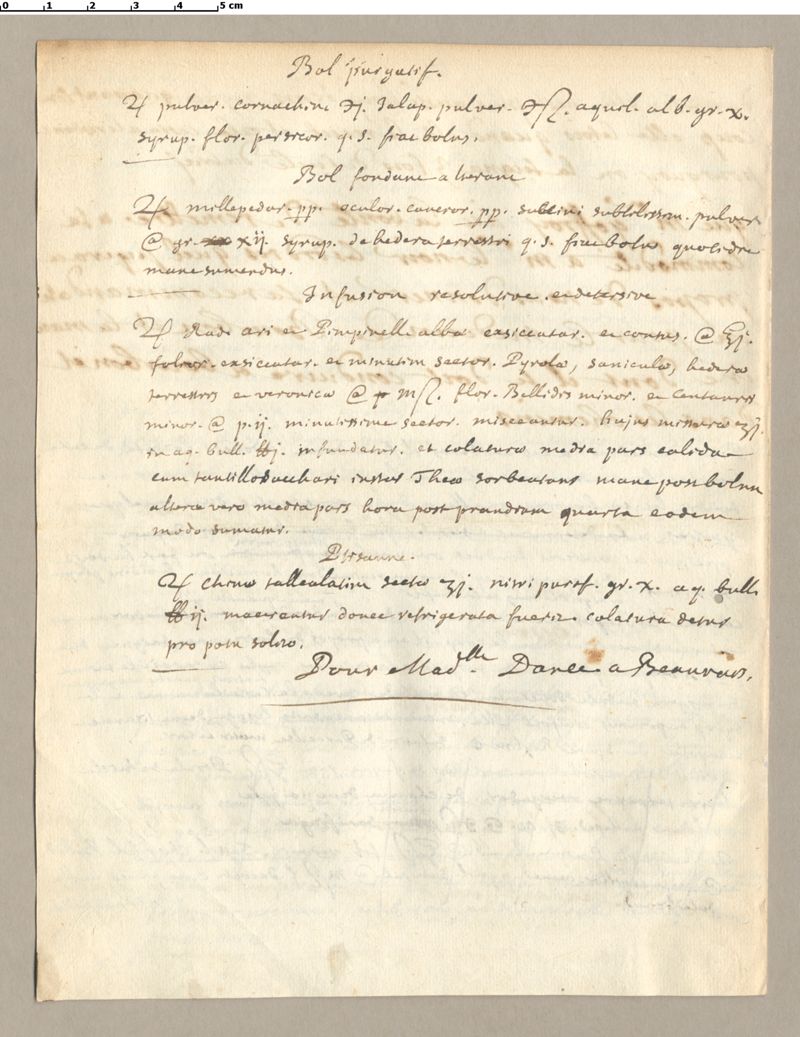 0 1 2 3 4 5 cm
Bol purgatif.
♃ pulver. cornachini ℈j. Jalap. pulver. ℈ß. aquil. alb. gr. x.
syrup. flor. persicor. q. s. fiat bolus.
Bol fondant alterant
♃ millepedar. pp. oculor. cancror. pp. sublimi subtilissim. pulver
@ gr. xij. syrup. de hedera terrestri q. s. fiat bolus quotidie
mane sumendus.
Infusion resolutive et detersive
♃ Rad. ari et Pimpinell. alba exsiccatar. et contus. @ ʒj.
folior. exsiccatar. et minutim sector. Pyrola, sanicula, hedera
terrestris et veronica @ mß. flor. Bellidis minor. et Centaurii
minor. @ p. ij. minutissime sector. misceantur. hujus mistura ʒj.
in aq. bull. ℔j. infundatur. et colatura media pars calida
cum tantillo sacchari instar Thea sorbeatur mane post bolum
altera vero media pars hora post prandium quarta eodem
modo sumatur.
Ptisanne.
♃ China talleolatim secta ʒj. nitri purif. gr. x. aq. bull.
℔ij. macerentur donec refrigerata fuerit. colatura detur
pro potu solito.
Pour Mad.lle Darie a Beauvais.